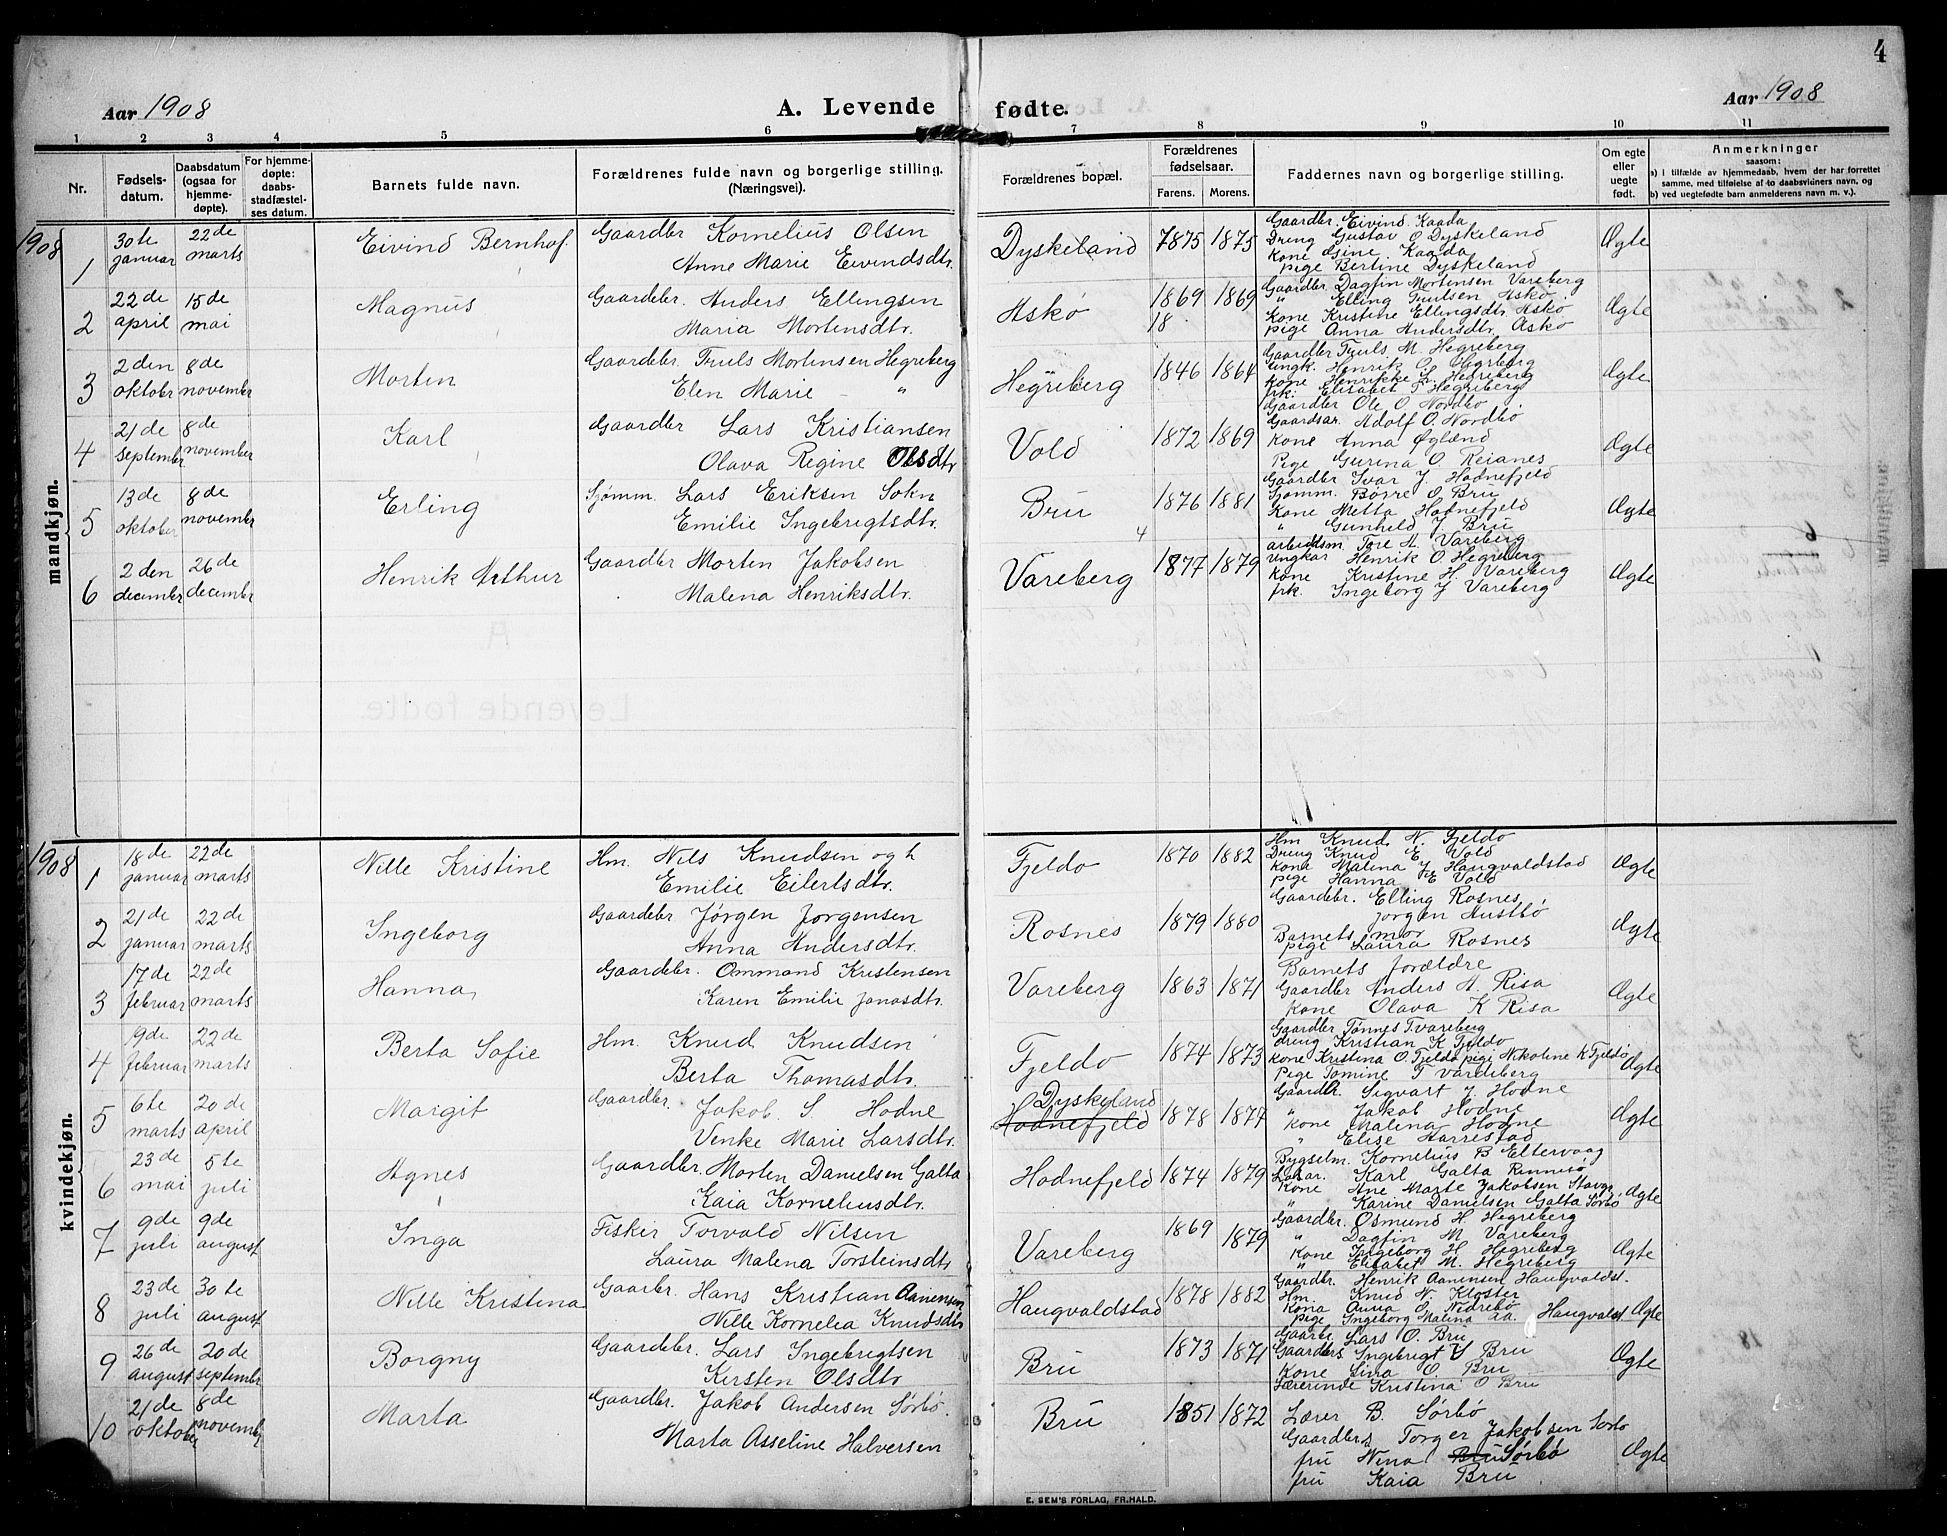 4
Aar 1908
A. Levende fødte.
Aar 1908
1 2 3 4 5 6 7 8 9 10 11
Nr.
Fødsels-
datum.
Daabsdatum
(ogsaa for
hjemme-
døpte).
For hjemme-
døpte:
daabs-
stadfæstel-
ses datum.
Barnets fulde navn.
Forældrenes fulde navn og borgerlige stilling.
(Næringsvei).
Forældrenes bopæl.
Forældrenes
fødselsaar.
Farens. Morens.
Faddernes navn og borgerlige stilling.
Om egte
eller
uegte
født.
Anmerkninger
saasom:
a) I tilfælde av hjemmedaab, hvem der har forrettet
samme, med tilføielse af to daabsvidners navn, og
b) ved uegtefødte barn anmelderens navn m. v.).
mandkjøn.
1908
1
30te januar
22de marts
Eivind Bernhof
Gaardbr Kornelius Olsen
Anne Marie Eivindsdtr.
Dyskeland
1875 1875
Gaardbr. Eivind Kaada
Dreng Gustav O Dyskeland
Kone Kaada
pige Bertine Dyskeland
Ægte
2
22de april
15de mai
Magnus
Gaardebr. Anders Ellingsen
Maria Mortensdtr.
Askø
1869 1869
18
Gaardbr. Dagfin Mortensen Vareberg
" Elling Truulsen Askø
Kone Kristine Ellingsdtr. Askø
pige Anna Andersdtr. Askø
Ægte
3
2den oktobr
8de november
Morten
Gaardebr. Truls Mortensen Hegreberg
Elen Marie — "
Hegreberg
1846 1864
Gaardbr Truls M. Hegreberg
ungk. Henrik O. Hegreberg
Kone Henrikke L. Hegreberg
frk. Elisabet T Hegreberg
Ægte
4
21de september
8de november
Karl
Gaardbr Lars Kristiansen
Olava Regine Olsdtr
Vold
1872 1869
Gaardbr Ole O. Nordbø
Gaardsar. Adolf O. Nordbø
Kone Anna Øglænd
Pige Gurina O. Reianes
Ægte
5
13de oktober
8de november
Erling
Sjømm. Lars Eriksen Sokn
Emilie Ingebrigtsdtr.
Bru
4
1876 1881
Gaardbr Ivar J. Hodnefjeld
Sjømm. Børre O. Bru
Kone Metta Hodnefjeld
" Gunhild J. Bru
Ægte
6
2den decembr
26de decembr
Henrik Arthur
Gaardbr Morten Jakobsen
Malena Henriksdtr.
Vareberg
1877 1879
arbeidsm. Tore A. Vareberg
ungkar Henrik O. Hegreberg
Kone Kristine H. Vareberg
frk. Ingeborg J Vareberg
Ægte
kvindekjøn.
1908
1
18de januar
22de marts
Nille Kristine
Hm. Nils Knudsen og h
Emilie Eilertsdtr.
Fjeldo
1870 1882
Hm Knud N. Fjeldo
Dreng Knud E. Vold
Kona Malena J Haugvaldstad
pige Hanna E Vold
Ægte
2
21de januar
22de marts
Ingeborg
Gaardebr Jørgen Jorgensen
Anna Andersdtr.
Rosnes
1879 1880
Gaardebr. Elling Rosnes
Jorgen Austbø
Barnets mor
pige Laura Rosnes
Ægte
3
17de februar
22de marts
Hanna
Gaardebr. Ommund Kristensen
Karen Emilie Jonasdtr.
Vareberg
1863 1871
Barnets forældre
Gaardbr Anders A. Risa
Kone Olava K Risa
Ægte
4
9de februar
22de marts
Berta Sofie
Hm. Knud Knudsen
Berta Thomasdtr.
Fjeldo
1874 1873
Gaardbr Tønnes T. vareberg
dreng Kristian K Fjeldo
Kone Kristina O. Fjeldo pige Nikoline K Fjeldo
Pige Tomine T vareberg
Ægte
5
6te marts
20de april
Margit
Gaardebr. Jakob S Hodne
Venke Marie Larsdtr.
Dyskeland
Hodnefjeld
1878 1877
Gaardb. Sigvart J. Hodne
" Jakob Hodne
Kone Malina Hodne
" Elise Harrestad
Ægte
6
23de mai
5te juli
Agnes
Gaardbr. Morten Danielsen Galta
Kaia Korneliusdtr.
Hodnefjeld
1874 1879
Bygselm. Kornelius B Eltervaag
Karl Galta Rennesø
Kone Ane Marte Jakobsen Stavgr.
" Karine Danielsen Galta Sørbø
Ægte
7
9de juli
9de august
Inga
Fisker Torvald Nilsen
Laura Malena Torsteinsdtr
Vareberg
1869 1879
Gaardbr. Osmund H. Hegreberg
" Dagfin M. Vareberg
Kone Ingeborg H Hegreberg
" Elisabet M. Hegreberg
Ægte
8
23de juli
30te august
Nille Kristina
Gaarbr. Hans Kristian Aanensen
Nille Kornelia Knudsdtr
Haugvaldstad
1878 1882
Gaardbr. Henrik Aanensen Haugvaldst.
Hm. Knud N. Kloster
Kona Anna O. Nedrebø
pige Ingeborg Malina Aa. Haugvaldst
Ægte
9
26de august
20de september
Borgny
Gaardebr. Lars Ingebrigtsen
Kirsten Olsdtr
Bru
1873 1871
Gaarbr. Lars O. Bru
Gaardbrs. Ingebrigt Bru
Kone Lina O. Bru
Lærerinde Kristina O Bru
Ægte
10
21de oktober
8de november
Marta
Gaardbr. Jakob Andersen Sørbø.
Marta Asseline Halversen
Bru
1851 1872
Lærer B. Sørbø
Gaardbr. Torger Jakobsen Sørbø
fru Nina Bru Sørbø
fru Kaia Bru
Ægte
E. SEM'S FORLAG, FR.HALD.